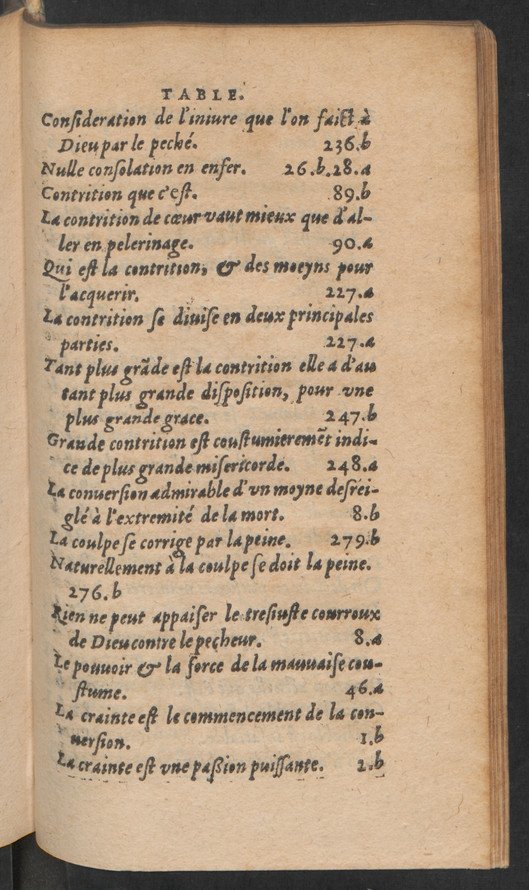 TABLE.
Consideration de l'iniure que l'on faict à
Dieu par le peché. 236.b
Nulle consolation en enfer. 26.b.28.a
Contrition que c'est. 89.b
La contrition de cœur vaut mieux que d'al-
ler en pelerinage. 90.a
Qui est la contrition, & des moeyns pour
l'acquerir. 227.a
La contrition se diuise en deux principales
parties. 227.a
Tant plus grãde est la contrition elle a d'au
tant plus grande disposition, pour vne
plus grande grace. 247.b
Grande contrition est coustumieremẽt indi-
ce de plus grande misericorde. 248.a
La conuersion admirable d'vn moyne desrei-
glé à l'extremité de la mort. 8.b
La coulpe se corrige par la peine. 279.b
Naturellement à la coulpe se doit la peine.
276.b
Rien ne peut appaiser le tresiuste courroux
de Dieu contre le pecheur. 8.a
Le pouuoir & la force de la mauuaise cou-
stume. 46.a
La crainte est le commencement de la con-
uersion. 1.b
La crainte est vne passion puissante. 2.b